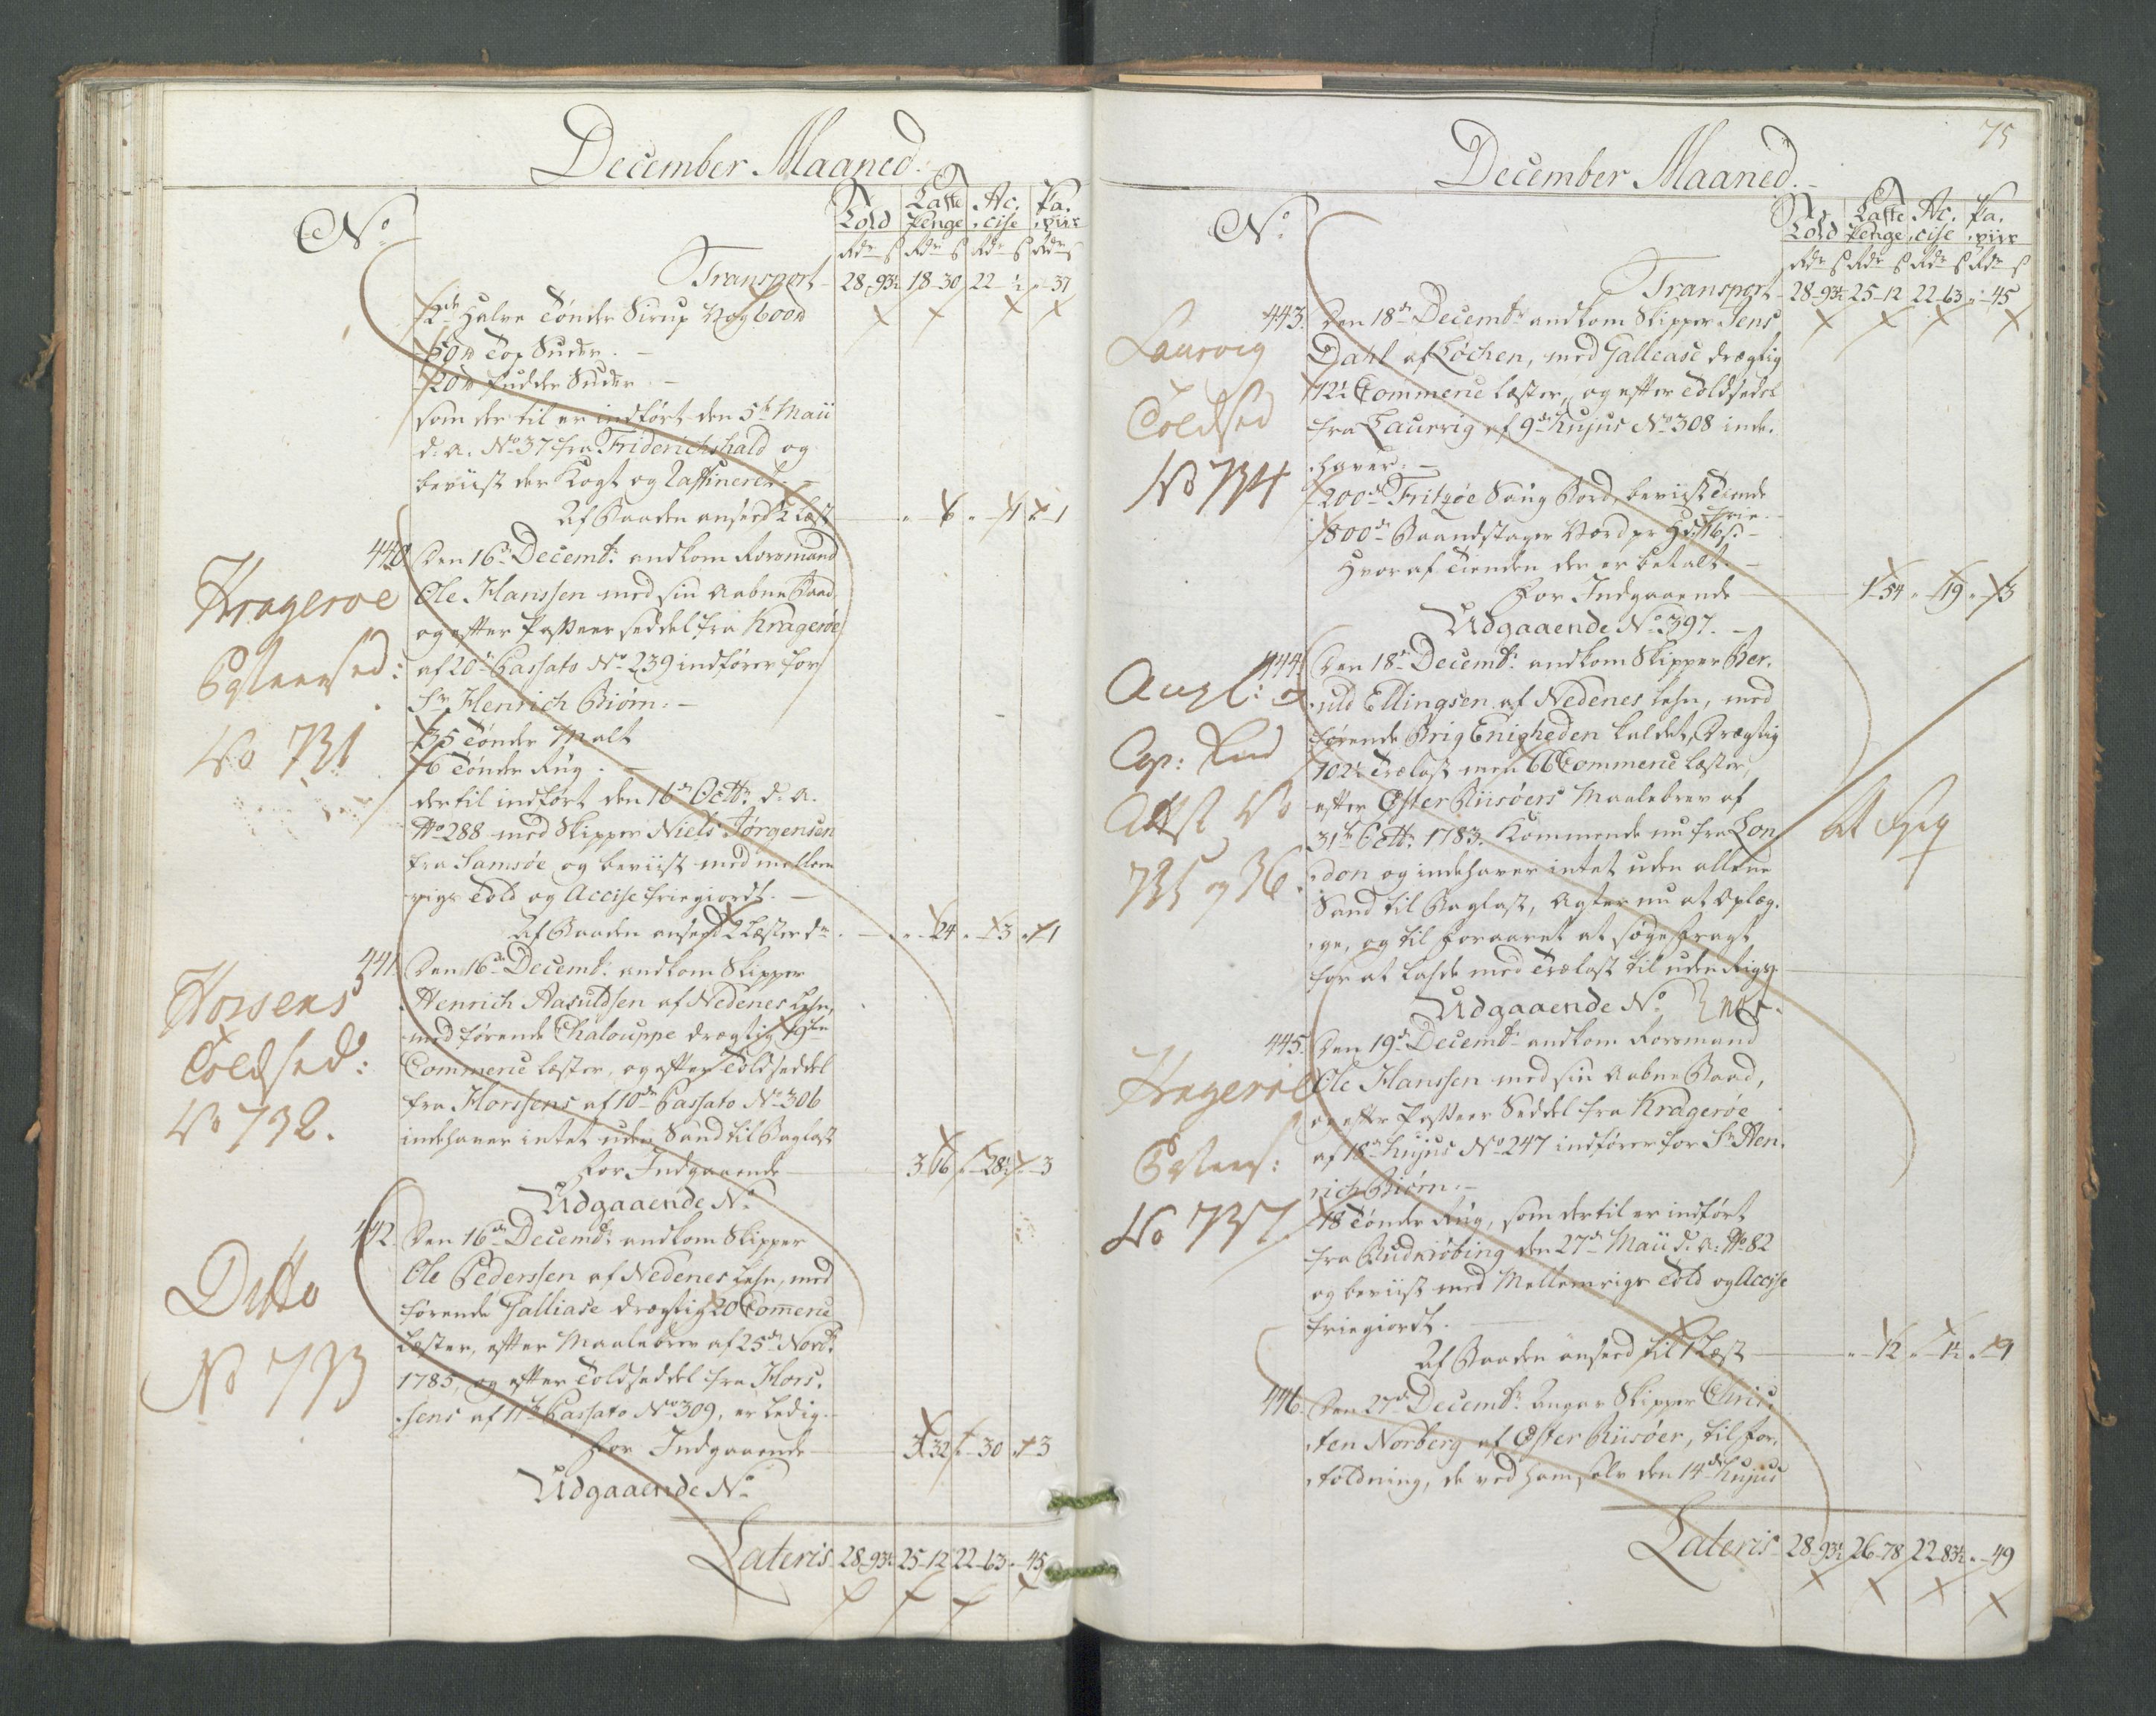 December Maaned.
No
Told
Læste Penge
Ac. cise
Pa. piir
Rdr ß Rdr ß Rdr ß Rdr ß
Transport 28-93½ 18-30 22-½ „-37
2de Halve Tønder Sirup Vog 600 lb
50 lb Top Suder.
20 lb Pudder Suder.
som der til er indført den 5te Maii
d. a. No 37 fra Friderichshald og
beviist der Kogt og Raffineret.
Af Baaden anseed ½ Læst „-6 „-1 „-1
Kragerøe
Passeersed:
No 731
440. Den 16de Decembr ankom Rorsmand
Ole Hanssen med sin Aabne Baad,
og efter Passeer seddel fra Kragerøe
af 20de Passato No 239 indfører for
Sr Henrich Biørn.
35 Tønder Malt
6 Tønder Rug.
dertil indført den 16de Octbr d. a.
No 288 med Skipper Niels Jørgensen
fra Samsøe og beviist med mellem
rigs Told og Accise friegiordt.
Af Baaden anseed 2 Læster dr „-24 „-3 „-1
Horsens
Toldsed:
No 732.
441. Den 16de Decembr ankom Skipper
Henrich Aasuldsen af Nedenes Lehn,
med førende Chalouppe drægtig 19de
Commerce læster, og efter Toldseddel
fra Horssens af 10de Passato No 306
indehaver intet uden Sand til Baglast
For Indgaaende 3-16 „-28½ „-3
Udgaaende No
Ditto
No 733
442. Den 16de Decembr ankom Skipper
Ole Pederssen af Nedenes Lehn, med
førende Galliase drægtig 20 Commerce
Læster, efter Maalebrev af 25de Novbr
1785, og efter Toldseddel fra Hors.
sens af 11te Passato No 309, er ledig.
For Indgaaende 3-32 „-30 „-3
Udgaaende No
Lateris 28-93½ 25-12 22-63 „-45
75
December Maaned.
No
Told
Læste Penge
Ac. cise
Pa. piir
Rdr ß Rdr ß Rdr ß Rdr ß
Transport 28-93½ 25-12 22-63 „-45
Laurvig
Toldsed
No 734
443. Den 18de Decembr ankom Skipper Jens
Dahl af Løchen, med Gallease drægtig
12½ Commerce læster, og efter Toldsedel
fra Laurvig af 9de hujus No 308 inde.
haver.
200de Fritzøe Saug Bord, beviist Tiende
frie.
800de Baandstager Værd pr Hd 16 ß.
Hvoraf Tienden der er betalt.
For Indgaaende 1-54 „-19 „-3
Udgaaende No 397.
Angl: og
Cop:
Attst No
735 og 36.
444. Den 18de Decembr ankom Skipper Ber.
uld Ellingsen af Nedenes Lehn, med
førende Brig Enigheden kaldet, Drægtig
102½ Trælast men 66 Commerce læster,
efter Øster Riisøers Maalebrev af
31te Octbr 1783. Kommende nu fra Lon
don og indehaver intet uden allene
Sand til Baglast, Agter nu at oplæg.
ge, og til foraaret at søge fragt
for at lasde med Trælast til uden Rigs.
Udgaaende No
Kragerøe
Passeers:
No 737
445. Den 19de Decembr ankom Rorsmand
Ole Hanssen med sin Aabne Baad,
og efter Passeer Seddel fra Kragerøe
af 18de hujus No 247 indfører for Sr Hen.
rich Biørn.
18 Tønder Rug, som dertil er indført
fra Rudkiøbing den 27de Maii d. a: No 82
og beviist med Mellemrigs Told og Accise
friegiordt.
Af Baaden anseed til 1 Læst „-12 „-1½ „-1
446. Den 27de Decembr Angav Skipper Chris.
ten Norberg af Øster Riisøer, til for.
toldning, de ved ham selv den 14de hujus
Lateris 28-93½ 26-78 22-83½ „-49